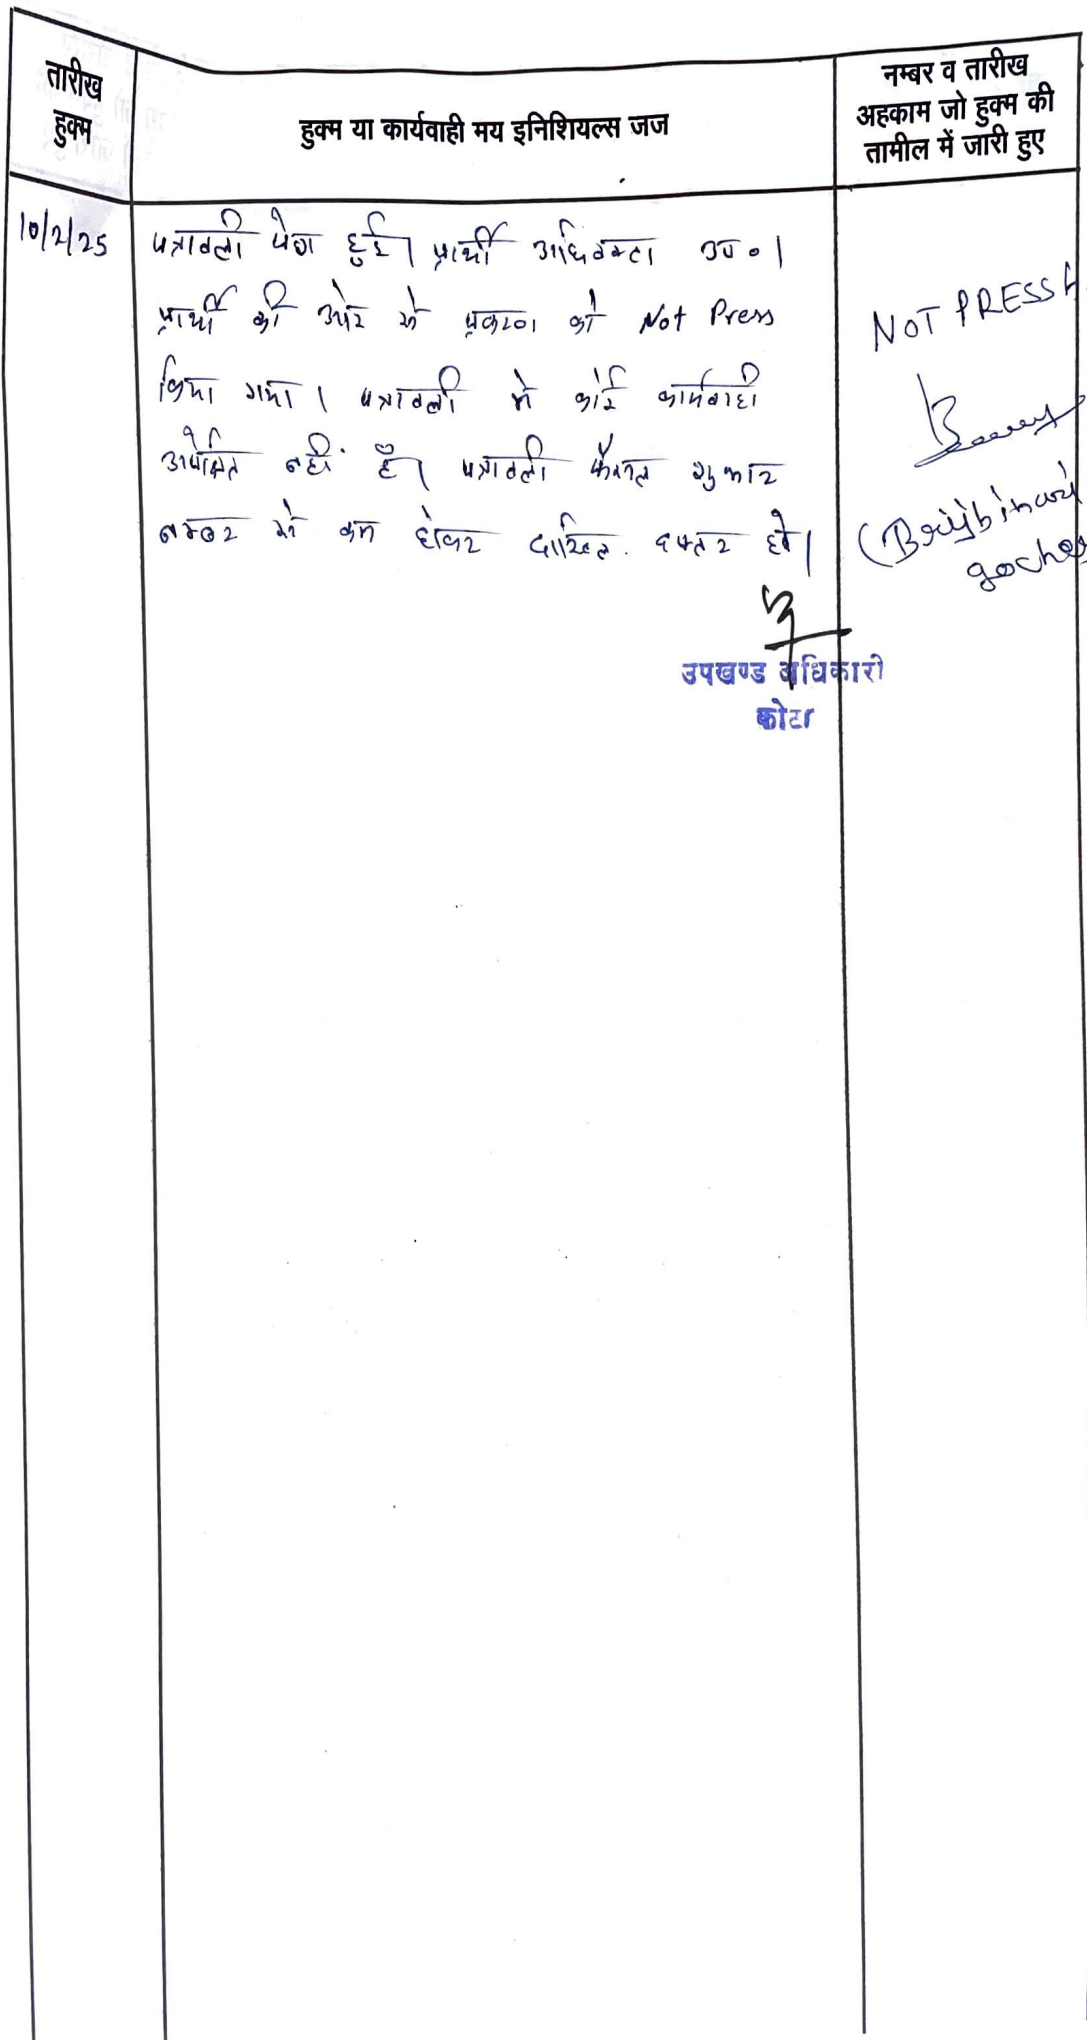 तारीख
हुक्म
हुक्म या कार्यवाही मय इनिशियल्स जज
नम्बर व तारीख
अहकाम जो हुक्म की
तामील में जारी हुए
10/2/25
पत्रावली पेश हुई। प्रार्थी अधिवक्ता उप०।
प्रार्थी की ओर से प्रकरण को Not Press
किया गया। पत्रावली मे कोई कार्यवाही
अपेक्षित नहीं है। पत्रावली फैसल शुमार
नम्बर से कम होकर दाखिल दफ्तर हो।
NOT PRESS
(Brijbihari
gochar
उपखण्ड अधिकारी
कोटा